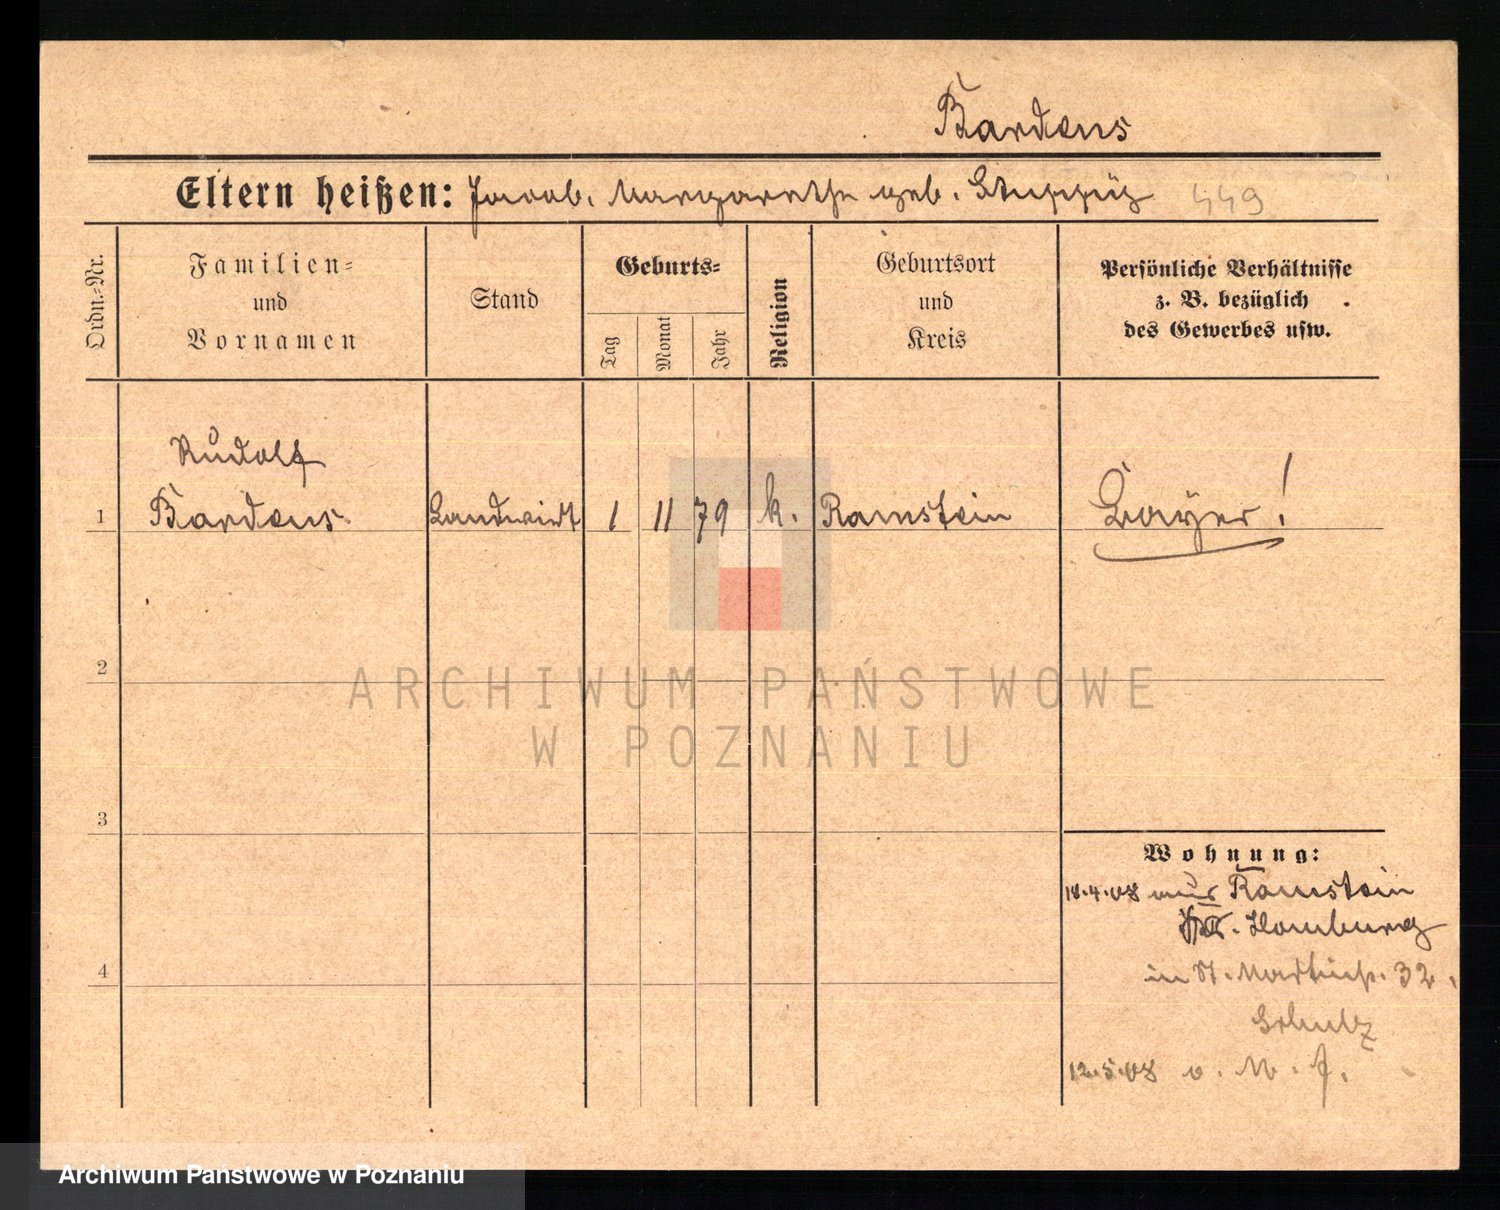 Bardens
Eltern heißen: Jacob. Margarethe geb. 449
Ordn.-Nr.
Familien-
und
Vornamen
Stand
Geburts-
Tag
Monat
Jahr
Religion
Geburtsort
und
Kreis
Persönliche Verhältnisse
z. B. bezüglich
des Gewerbes usw.
Rudolf
1 Bardens Landwirt 1 11 79 k. Ramstein Bayer!
2
ARCHIWUM PAŃSTWOWE
W POZNANIU
3
Wohnung:
18.4.08 aus Ramstein
Homburg
4
in St. Martinstr. 32.
Schulz
12.5.08 v. M. J.
Archiwum Państwowe w Poznaniu